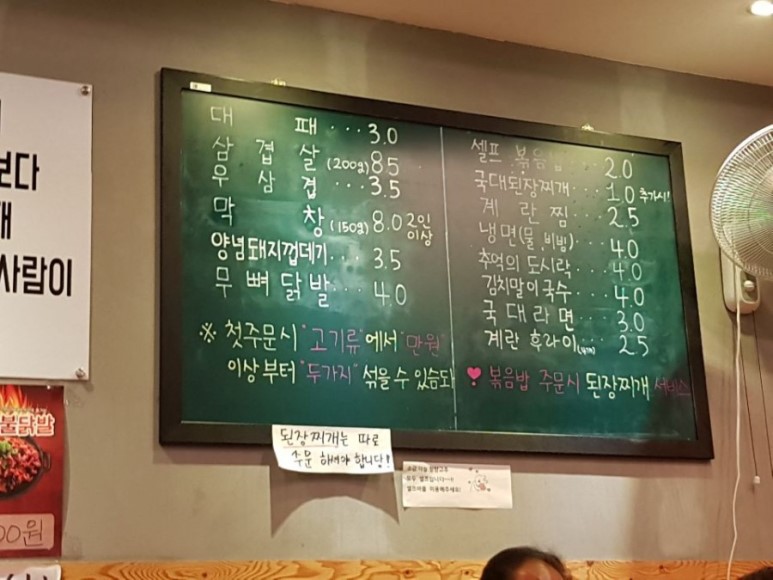 보다
사람이
불닭발
00원
대패...3.0
삼겹살(200g)8.5
우삼겹...3.5
막창(150g)8.0 2인이상
양념돼지껍데기...3.5
무뼈닭발...4.0
※ 첫주문시 "고기류"에서 "만원"
이상부터 "두가지" 섞을수있습니다
셀프 볶음밥...2.0
국대된장찌개...1.0 추가시!
계란찜...2.5
냉면(물,비빔)...4.0
추억의 도시락...4.0
김치말이국수...4.0
국대라면...3.0
계란 후라이 2.5
♥ 볶음밥 주문시 된장찌개 서비스
된장찌개는 따로
주문 하셔야 합니다!